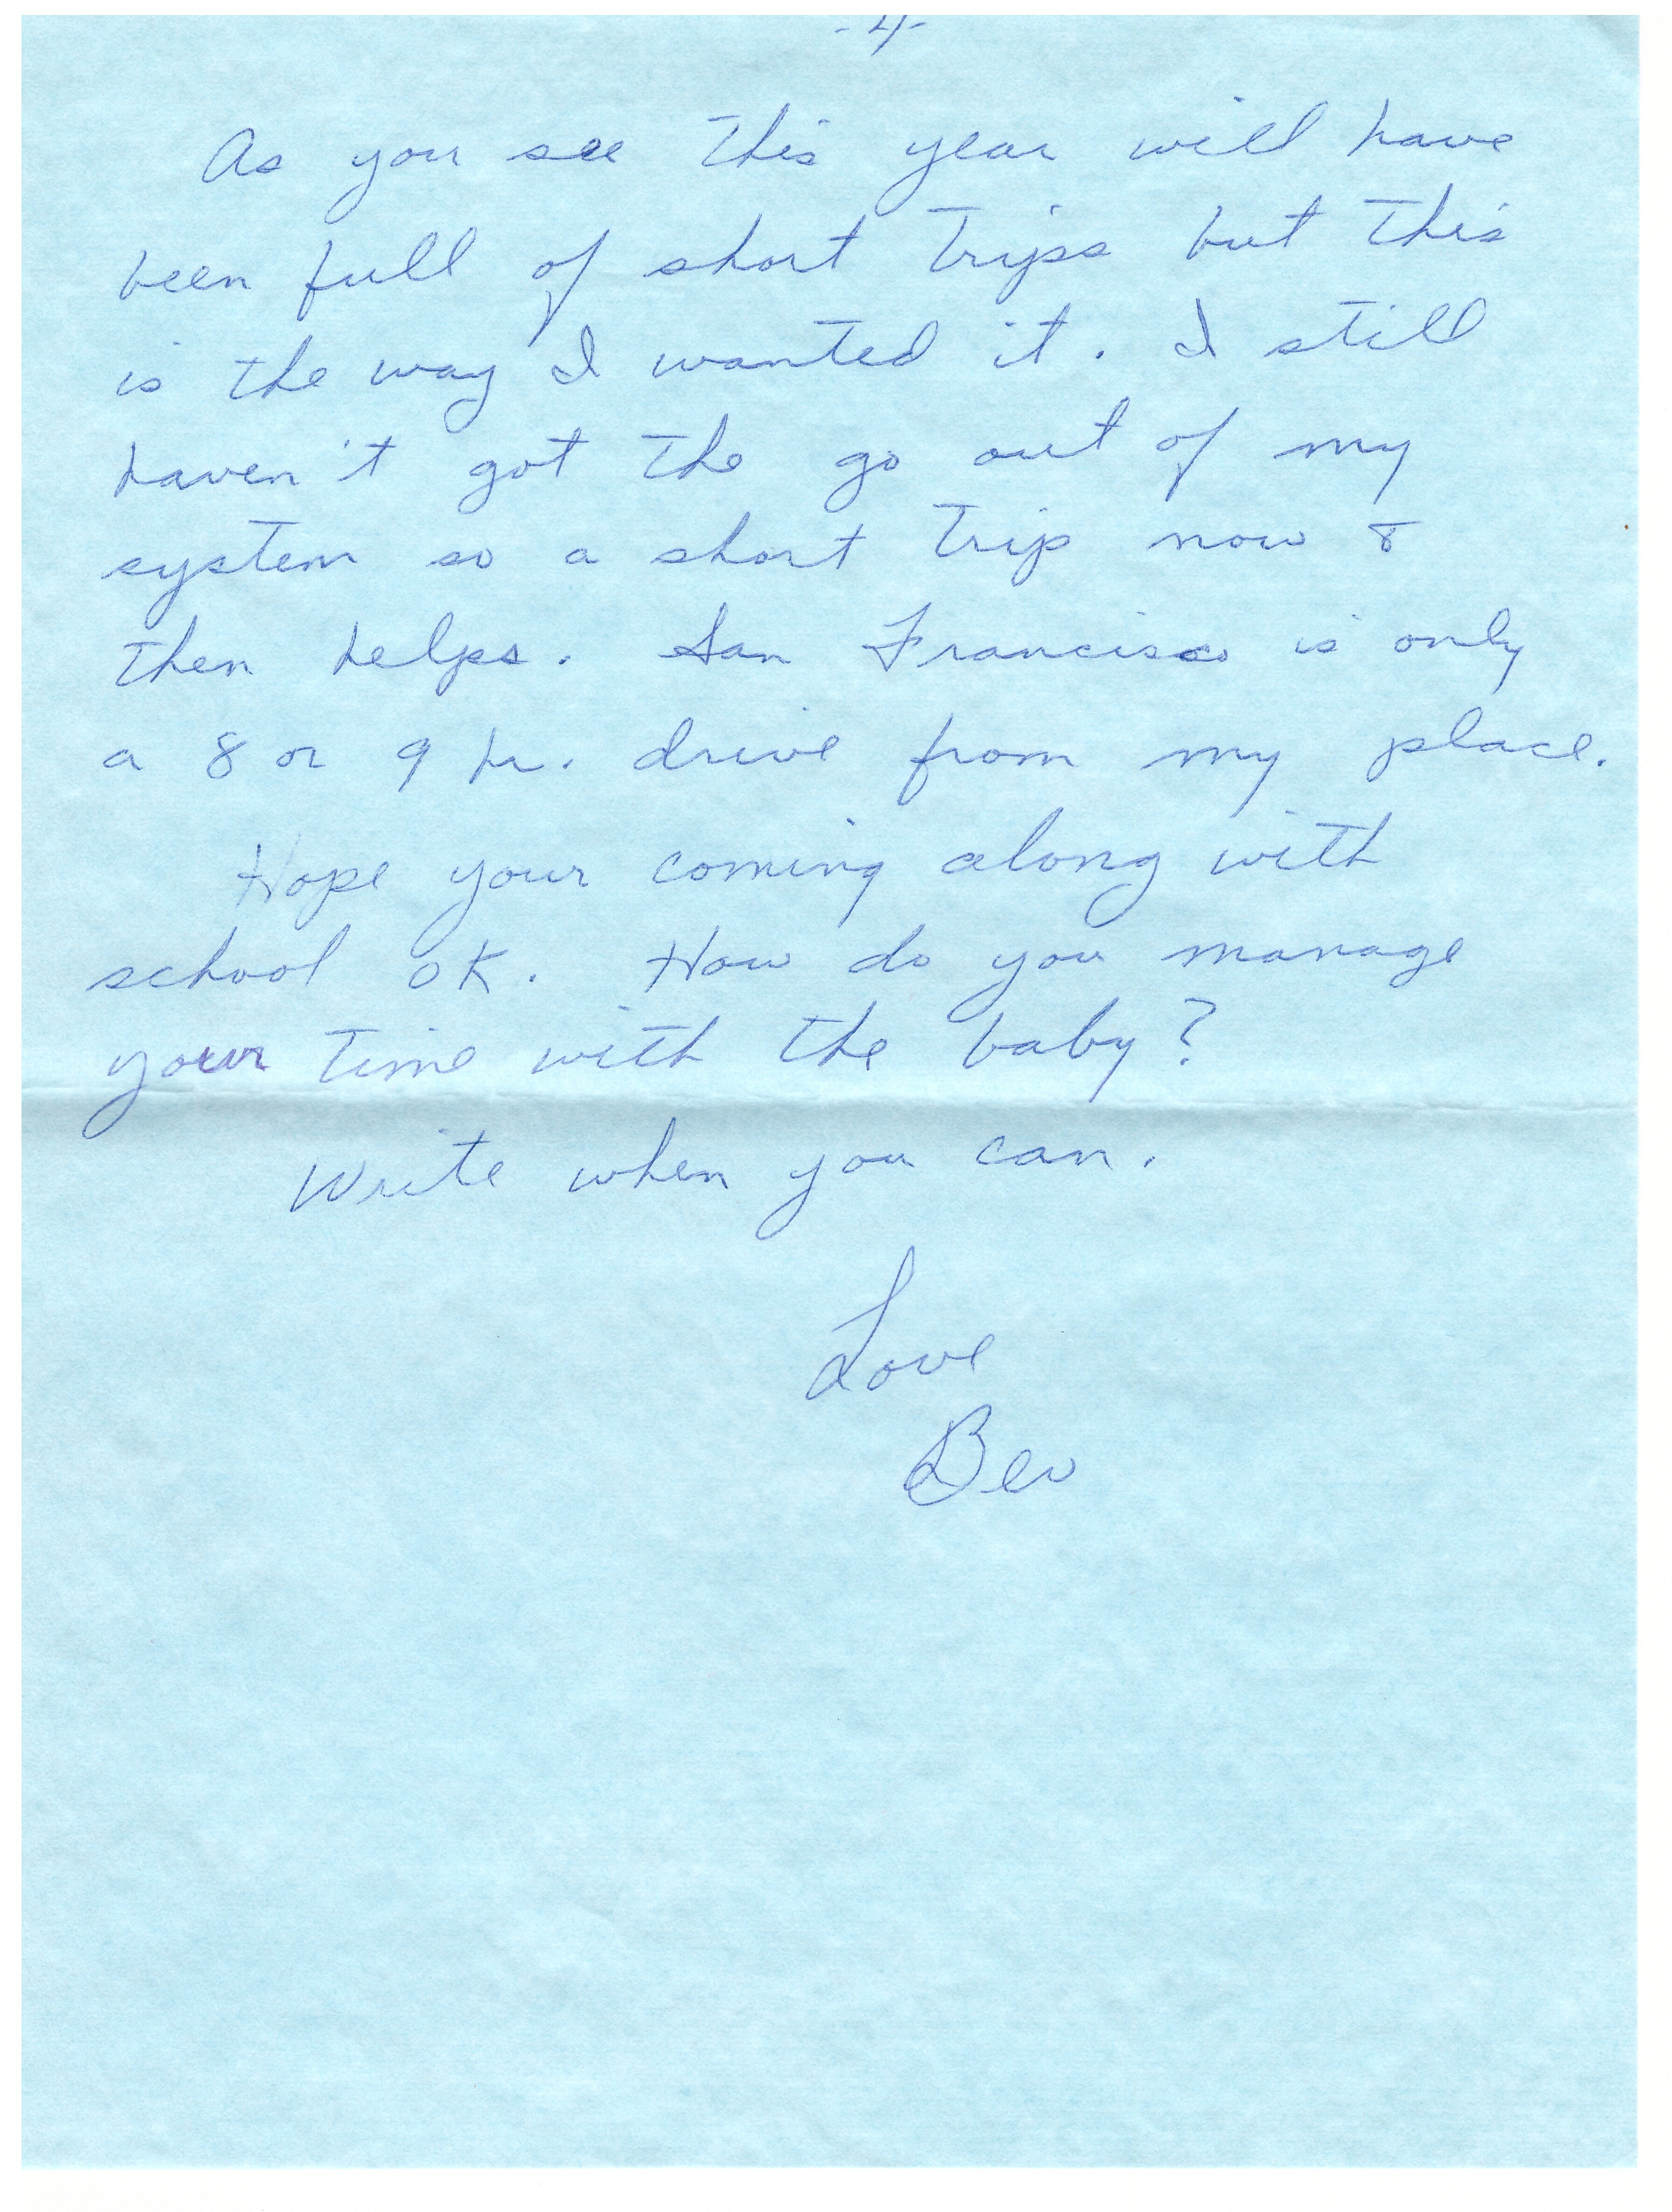 -4-
As you see this year will have
been full of short trips but this
is the way I wanted it. I still
haven't got the go out of my
system so a short trip now &
then helps. San Francisco is only
a 8 or 9 hr. drive from my place.
Hope your coming along with
school OK. How do you manage
your time with the baby?
Write when you can.
Love
Bev